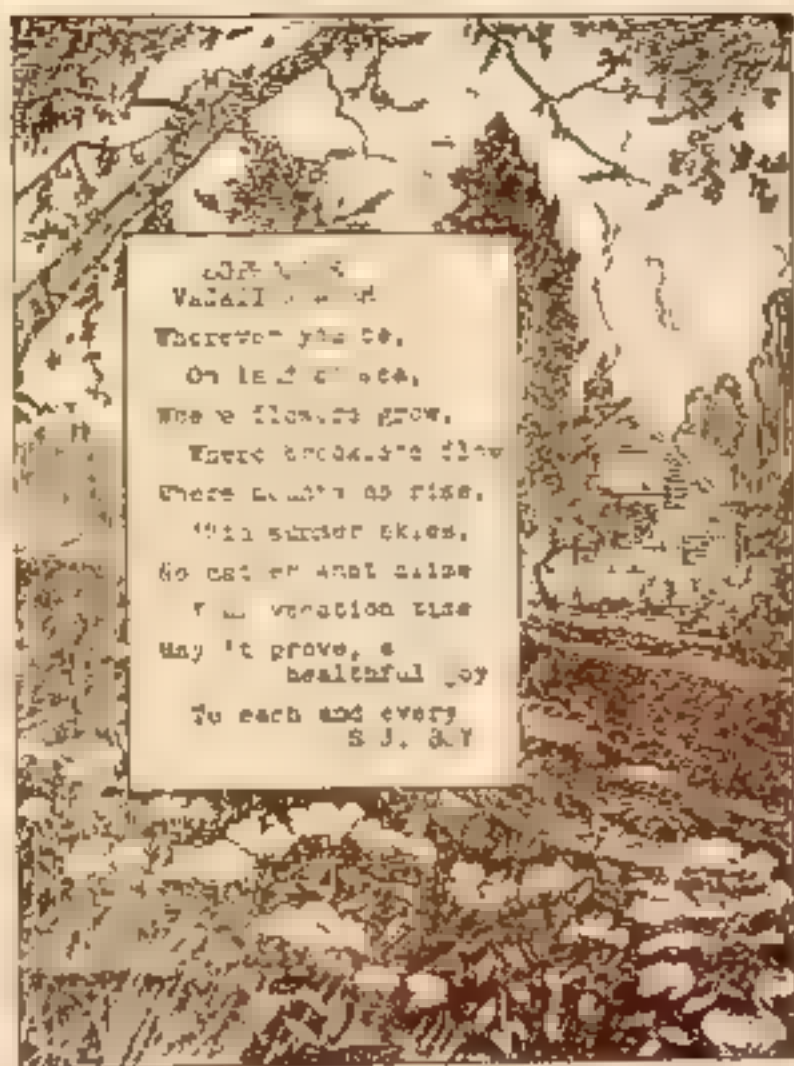 Wherever you be,
On land or sea,
Where flowers grow,
Where flow
Where mounts do rise,
summer skies,
No matter what clime
vacation time
May it prove, a
healthful joy
To each and every
S.J. BOY